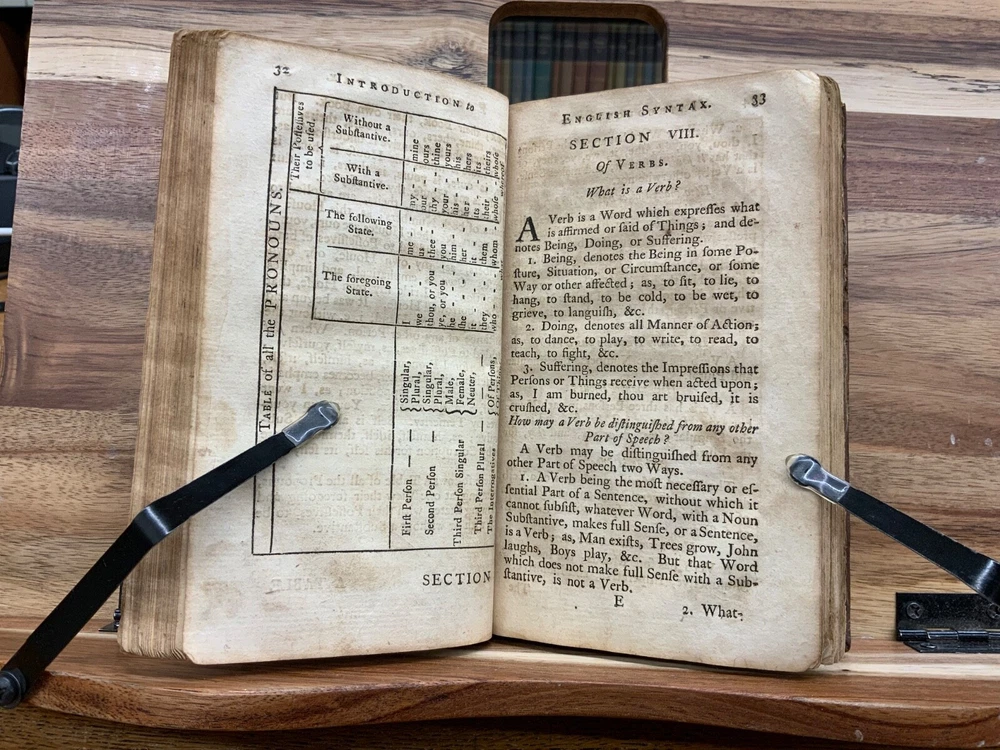 32
INTRODUCTION to
TABLE of all the PRONOUNS.
Their Possessives
to be used.
Without a
Substantive.
mine
ours
thine
yours
his
hers
its
theirs
whose
With a
Substantive.
my
our
thy
your
his
her
its
their
whose
The following
State.
me
us
thee
you
him
her
it
them
whom
The foregoing
State.
I
we
thou, or you
ye, or you
he
she
it
they
who
First Person — { Singular,
Plural,
Second Person — { Singular,
Plural,
Third Person Singular { Male,
Female,
Neuter,
Third Person Plural — —
The Interrogatives { Of Persons,
SECTION
ENGLISH SYNTAX. 33
SECTION VIII.
Of VERBS.
What is a Verb?
A Verb is a Word which expreſſes what
is affirmed or ſaid of Things; and de-
notes Being, Doing, or Suffering.
1. Being, denotes the Being in ſome Po-
ſture, Situation, or Circumſtance, or ſome
Way or other affected; as, to ſit, to lie, to
hang, to ſtand, to be cold, to be wet, to
grieve, to languiſh, &c.
2. Doing, denotes all Manner of Action;
as, to dance, to play, to write, to read, to
teach, to fight, &c.
3. Suffering, denotes the Impreſſions that
Perſons or Things receive when acted upon;
as, I am burned, thou art bruiſed, it is
cruſhed, &c.
How may a Verb be diſtinguiſhed from any other
Part of Speech?
A Verb may be diſtinguiſhed from any
other Part of Speech two Ways.
1. A Verb being the moſt neceſſary or eſ-
ſential Part of a Sentence, without which it
cannot ſubſiſt, whatever Word, with a Noun
Subſtantive, makes full Senſe, or a Sentence,
is a Verb; as, Man exiſts, Trees grow, John
laughs, Boys play, &c. But that Word
which does not make full Senſe with a Sub-
ſtantive, is not a Verb.
E
2. What-